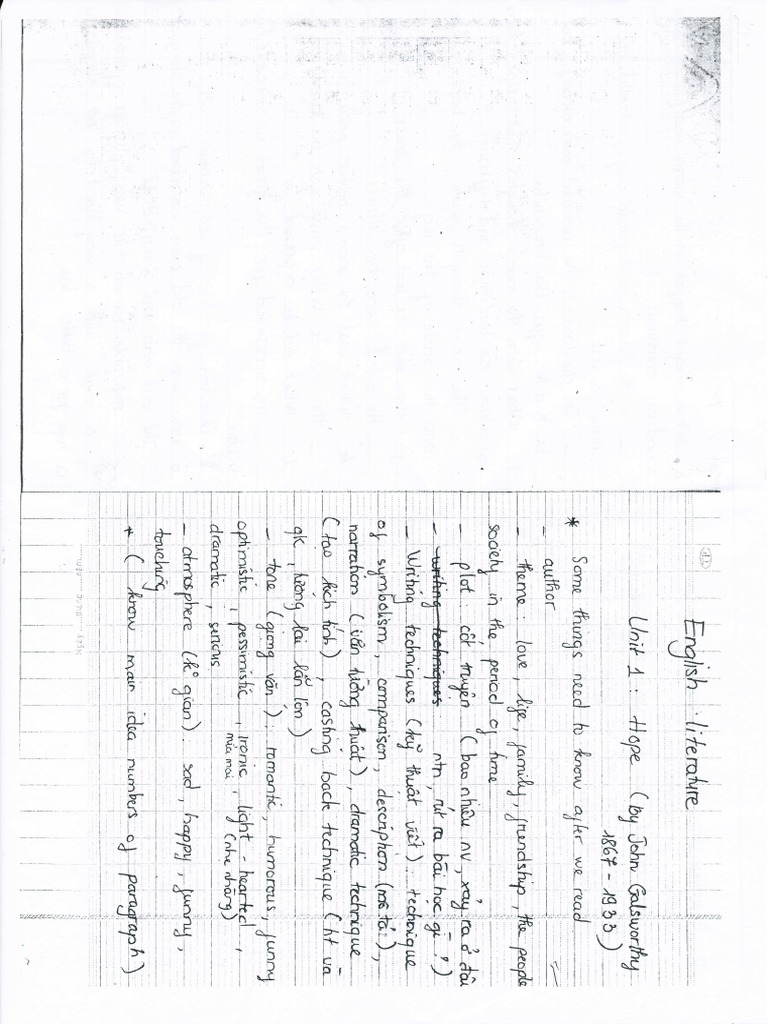 English literature
Unit 1 : Hope (by John Galsworthy
1867 - 1933)
* Some things need to know after we read
- author
- theme : love, life, family, friendship, the people
society in the period of time
- plot : cốt truyện (bao nhiêu nv, xảy ra ở đâu
- writing techniques ntn, rút ra bài học gì ?)
- Writing techniques (kỹ thuật viết) : technique
of symbolism, comparison, description (mô tả),
narration (văn tường thuật), dramatic technique
(tạo kịch tính), casting back technique (ht và
qk, tương lai lẫn lộn)
- tone (giọng văn) : romantic, humorous, funny
optimistic, pessimistic, ironic, light - hearted,
mỉa mai (nhẹ nhàng)
dramatic, serious
- atmosphere (ko gian) : sad, happy, funny,
touching
* ( know main idea numbers of paragraph)